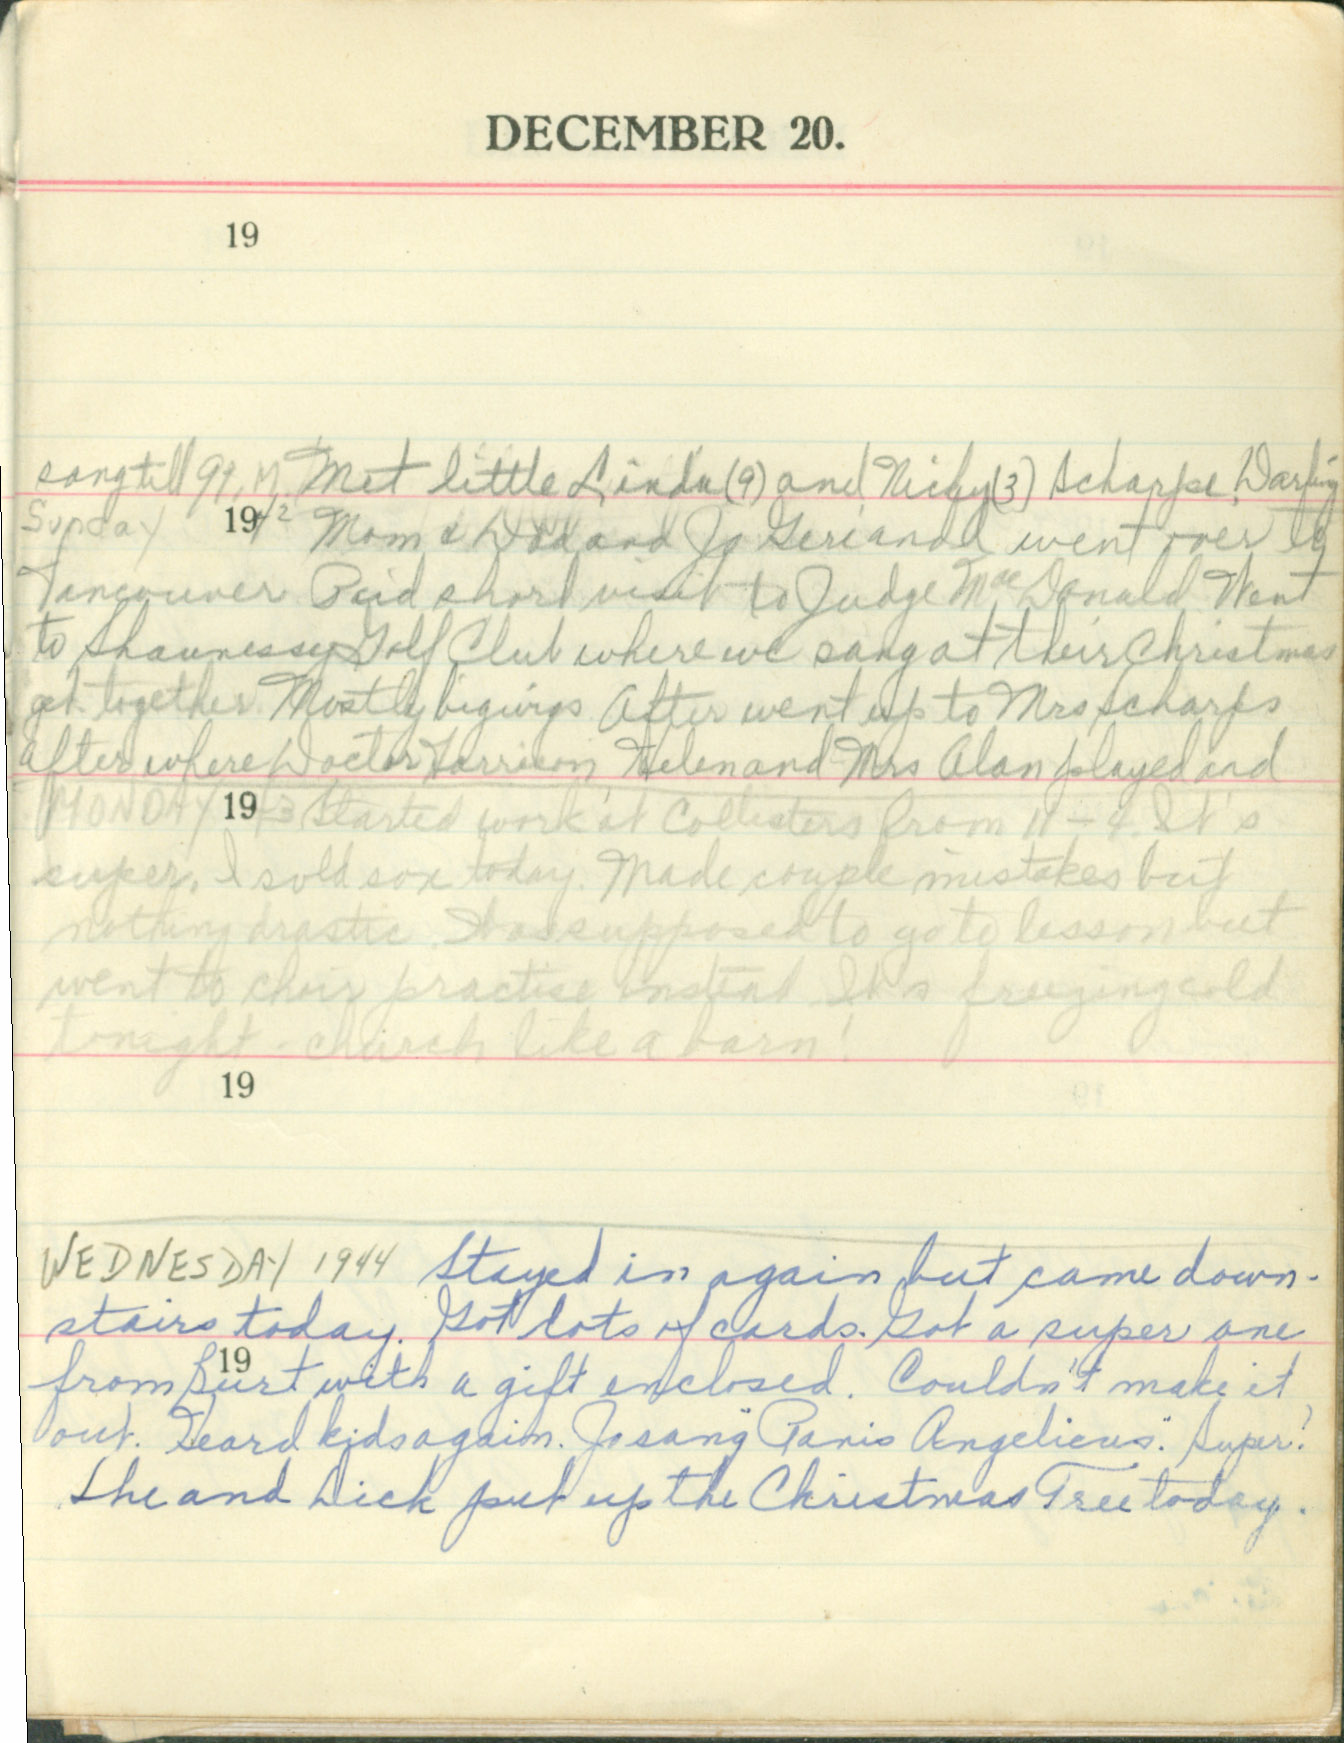 DECEMBER 20.
19
sang till 9 P.M. Met little Linda (9) and Nicky (3) Scharfe. Darling
Sunday 1942 Mom & Dad and Jo Geri and I went over to
Vancouver Paid short visit to Judge MacDonald Went
to Shaunessy Golf Club where we sang at their Christmas
get together. Mostly bigwigs After went up to Mrs Scharfs
after where Doctor Harrison, Helen and Mrs Alan played and
MONDAY 1943 Started work at Collisters from 11 - 4. It's
super. I sold sox today. Made couple mistakes but
nothing drastic. I was supposed to go to lesson but
went to choir practise instead It's freezing cold
tonight - church like a barn!
19
WEDNESDAY 1944 Stayed in again but came down-
stairs today. Got lots of cards. Got a super one
19
from Burt with a gift enclosed. Couldn't make it
out. Heard kids again. Jo sang "Panis Angelicus". Super!
She and Dick put up the Christmas Tree today.